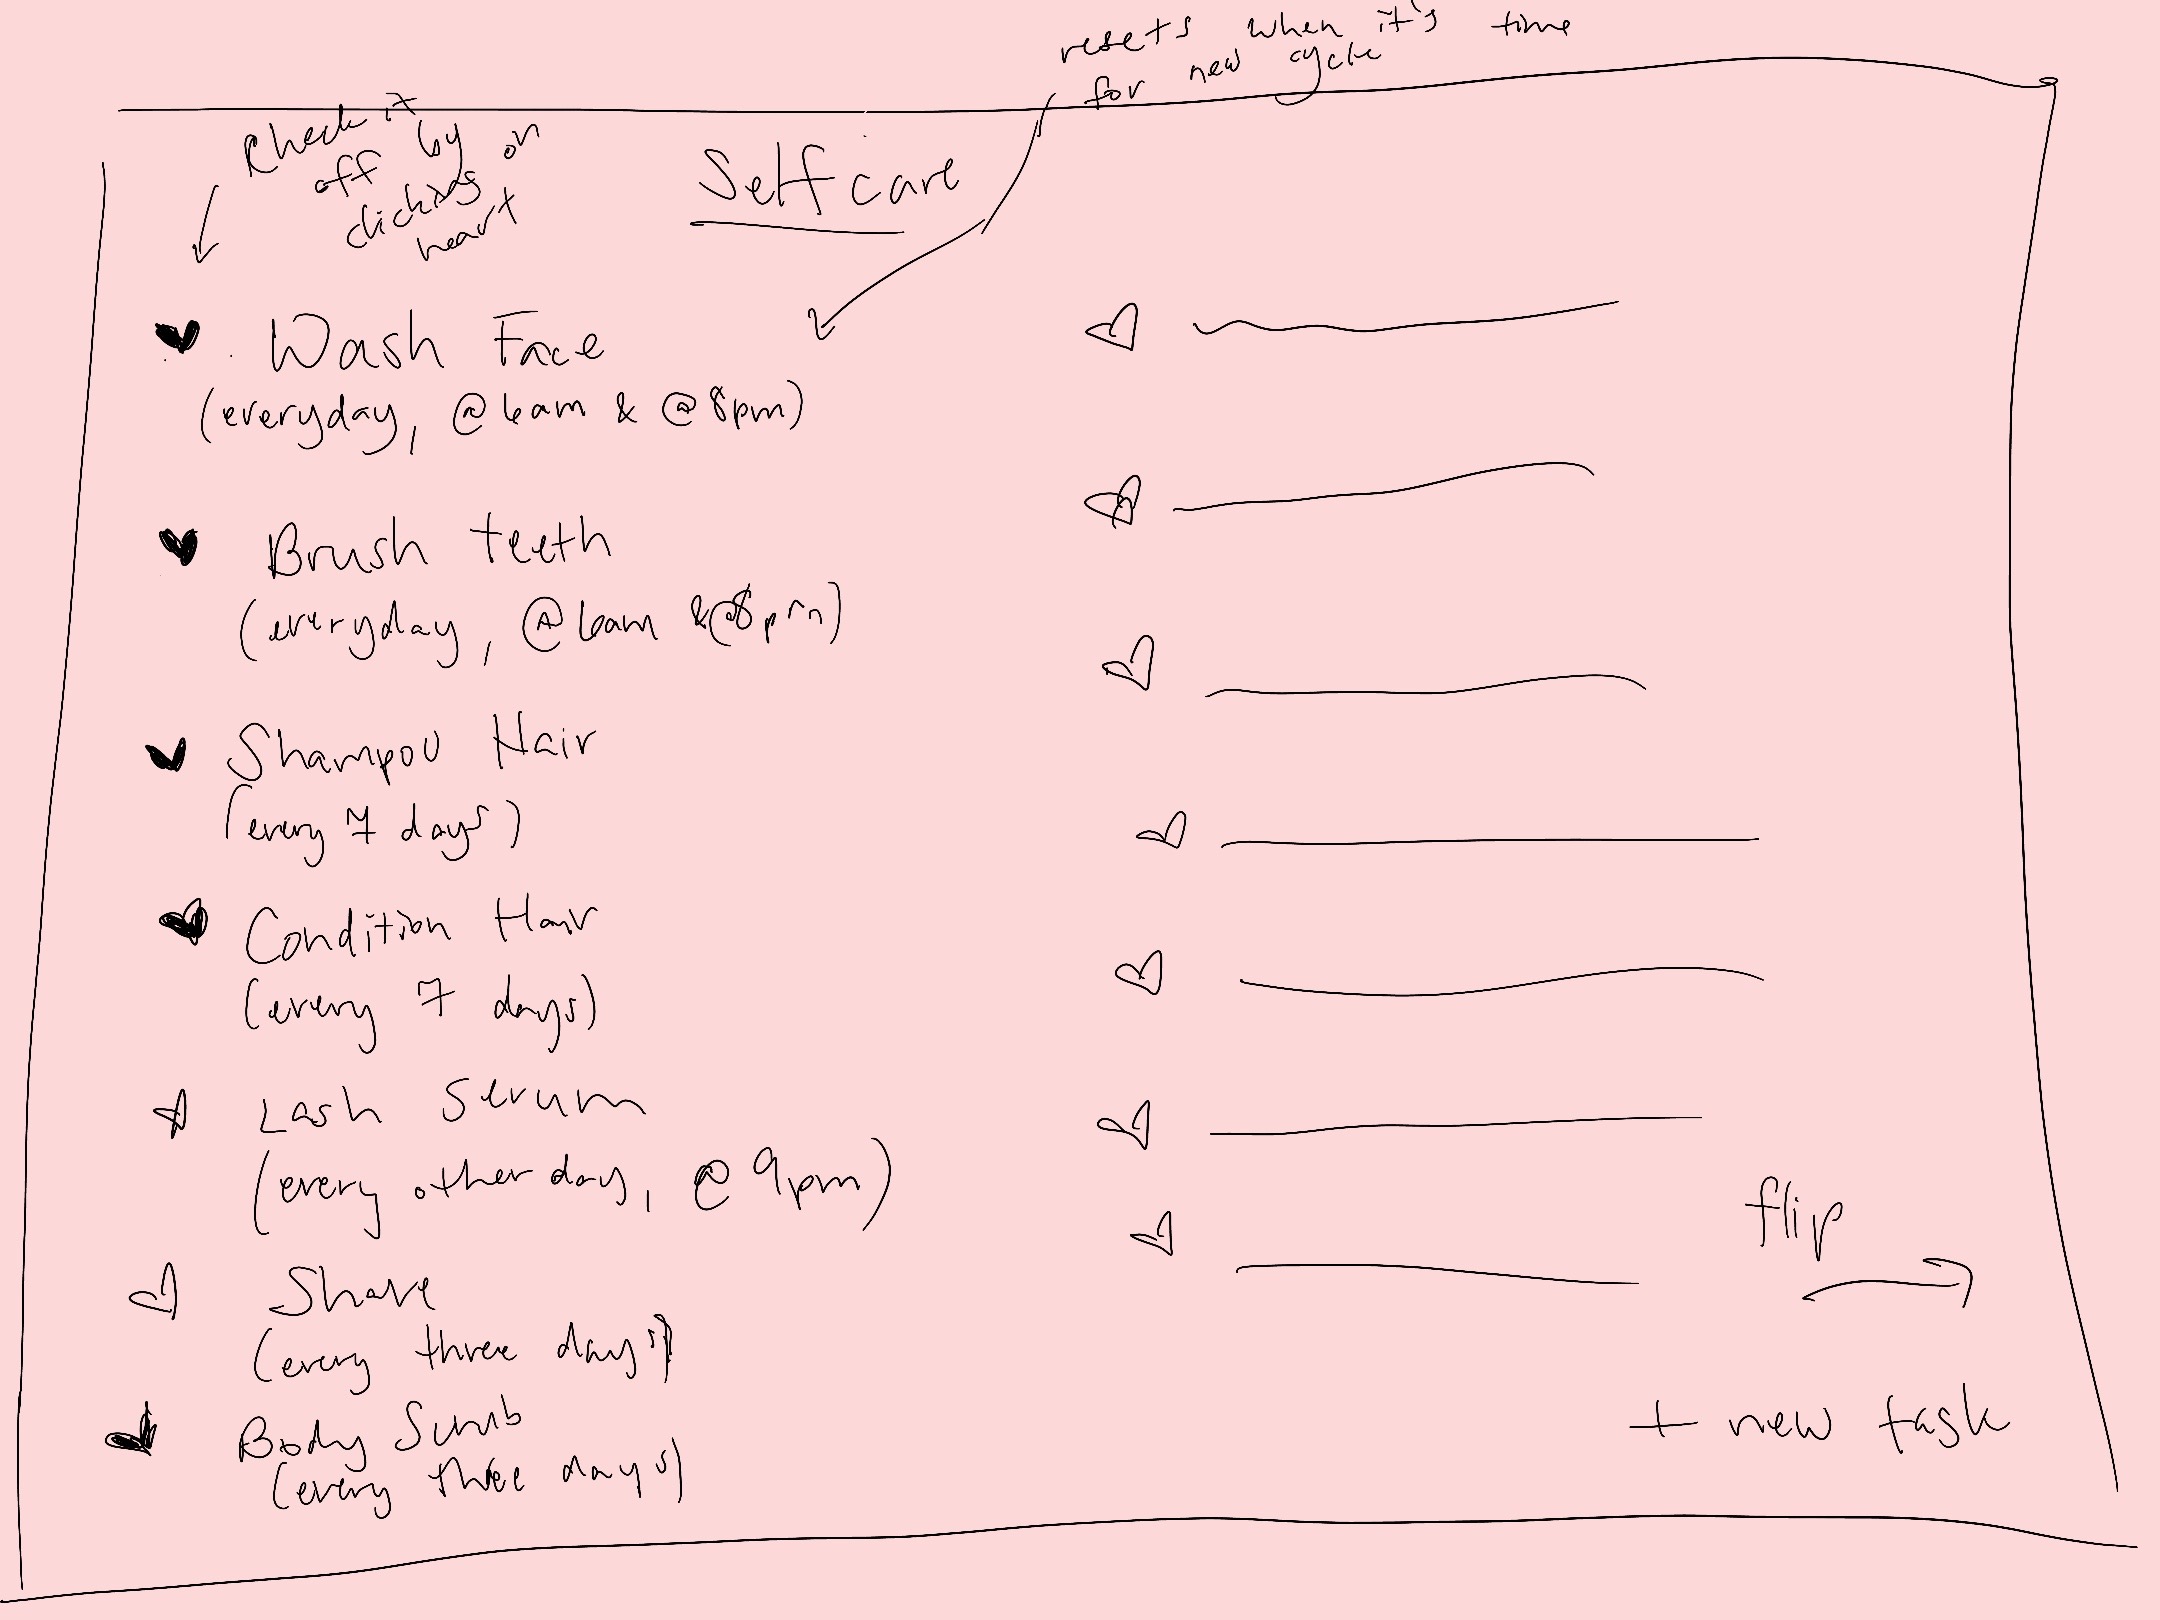 resets when it's time
for new cycle
Check it
off by
clicking on
heart
Selfcare
Wash Face
(everyday, @6am & @8pm)
Brush teeth
(everyday, @6am &@8pm)
Shampoo Hair
(every 7 days)
Condition Hair
(every 7 days)
Lash Serum
(every other day, @ 9pm)
Shave
(every three days)
Body Scrub
(every three days)
flip
+ new task